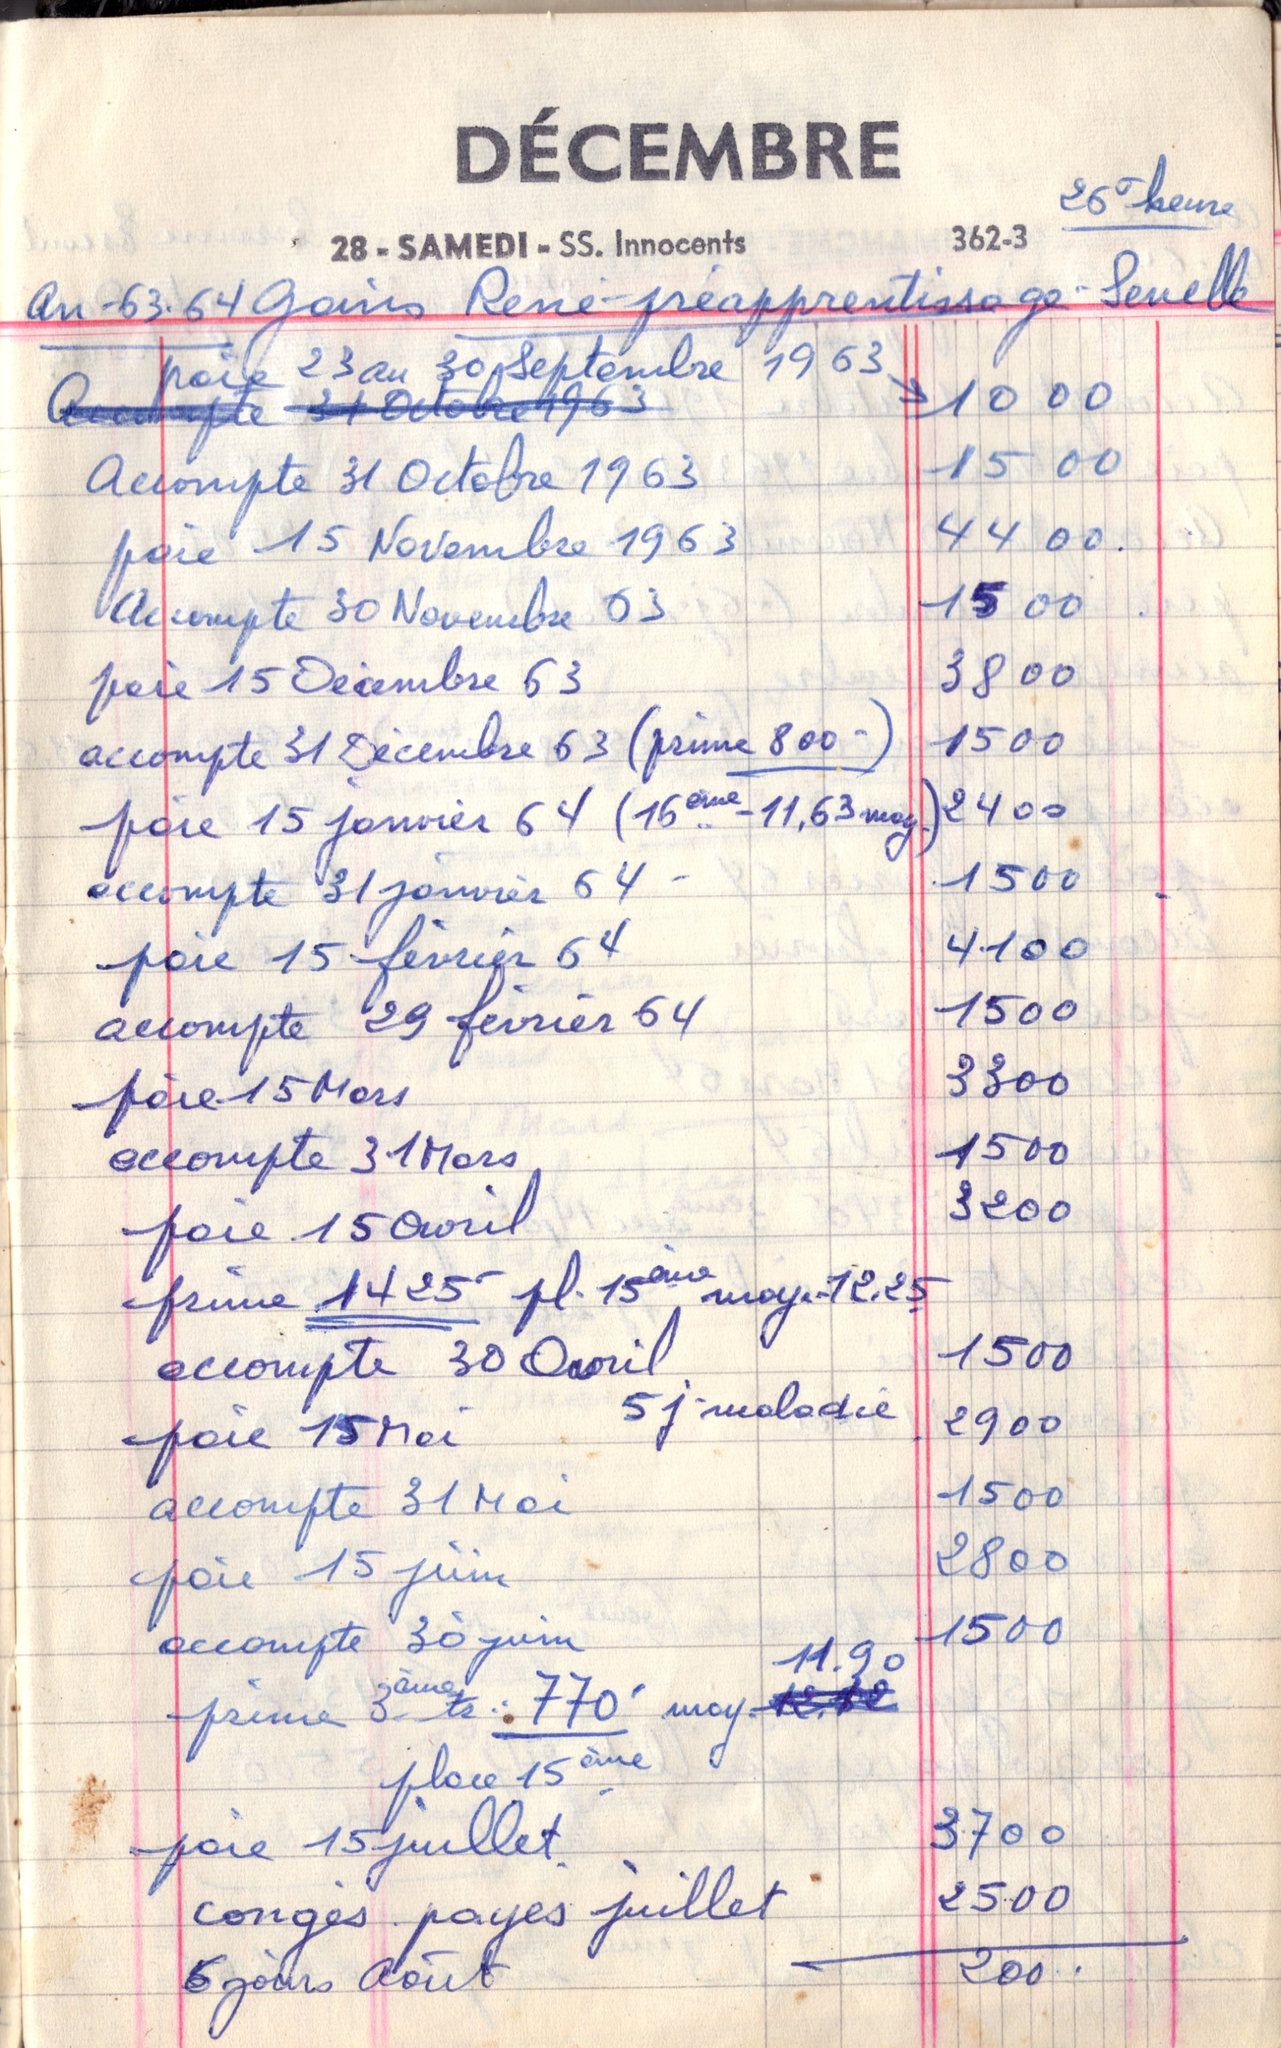 DÉCEMBRE
26 heure
28 - SAMEDI - SS. Innocents 362-3
An-63.64 Gains René-préapprentissage-Senelle
paie 23 au 30 Septembre 1963 → 1000
Accompte 31 Octobre 1963
Accompte 31 Octobre 1963 1500
paie 15 Novembre 1963 4400.
Accompte 30 Novembre 63 1500
paie 15 Décembre 63 3800
accompte 31 Décembre 63 (prime 800-) 1500
paie 15 janvier 64 (16ème-11,63 moy.) 2400
accompte 31 janvier 64 - 1500
paie 15 février 64 4100
accompte 29 février 64 1500
paie 15 Mars 3300
accompte 31 Mars 1500
paie 15 Avril 3200
prime 1425- pl. 15ème moy. 12.25
accompte 30 Avril 1500
paie 15 Mai 5 j. maladie 2900
accompte 31 Mai 1500
paie 15 juin 2800
accompte 30 juin 1500
11.90
prime 3ème tr. : 770 moy. 12.12
place 15ème
paie 15 juillet 3700
congés payes juillet 2500
6 jours Août 200.